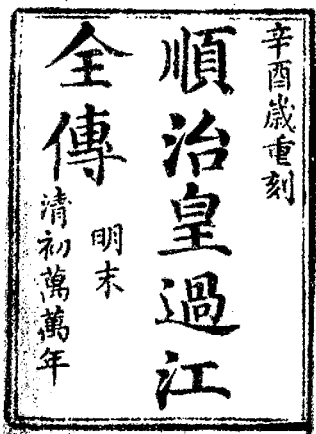 辛酉歲重刻
順治皇過江
全傳
明末
清初萬萬年